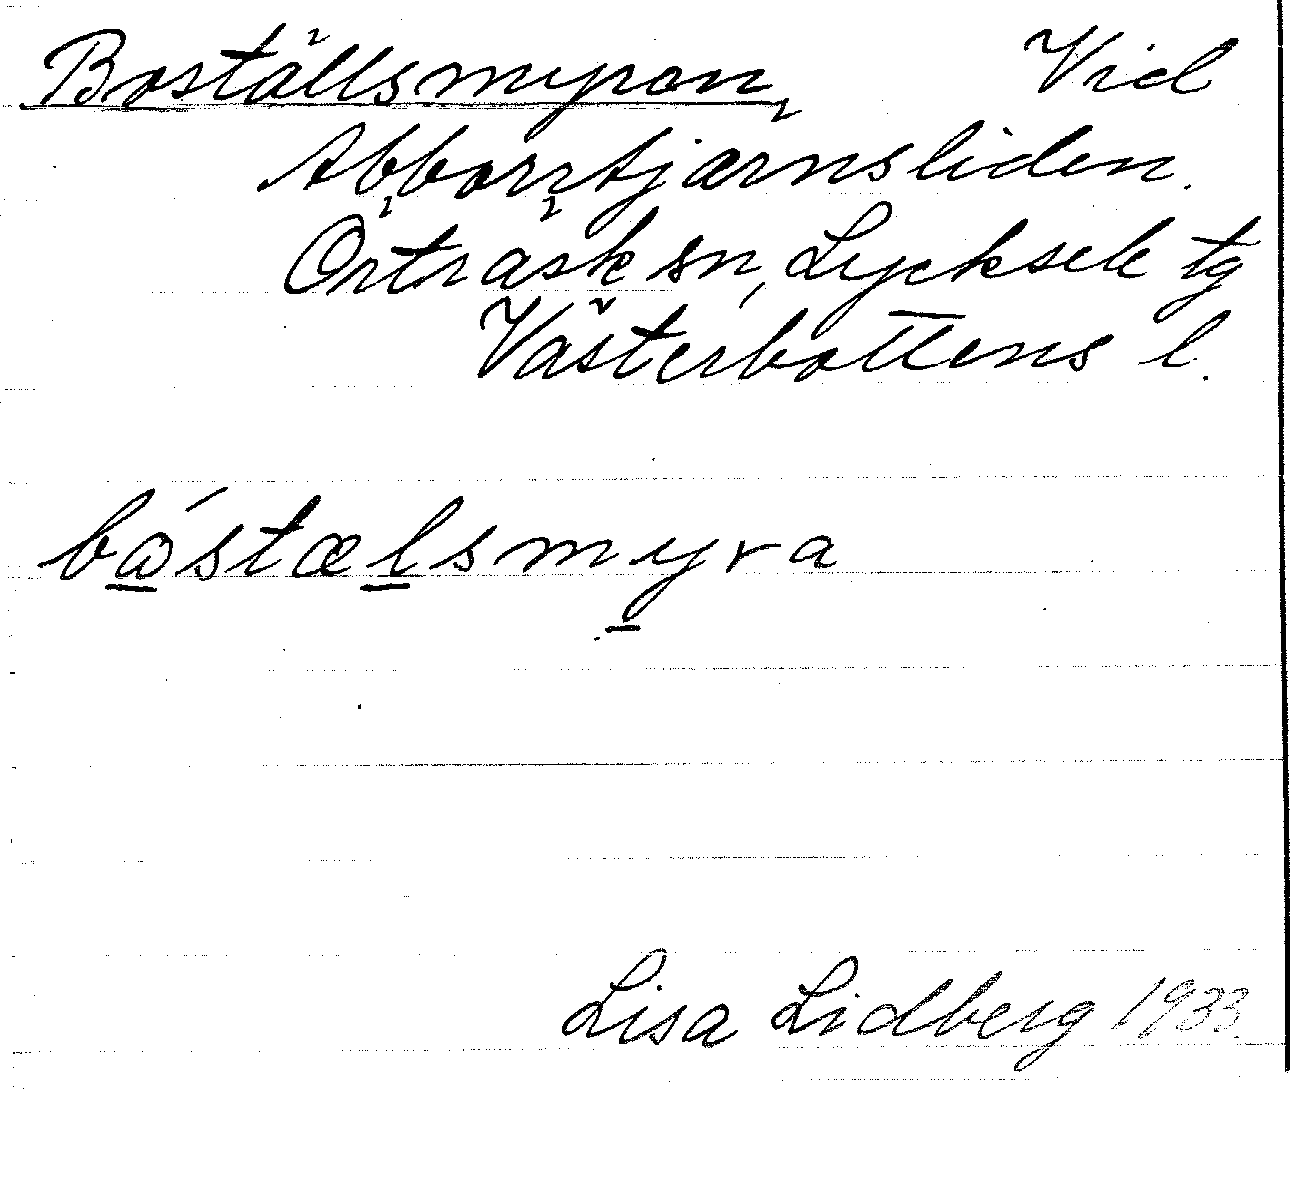 Boställsmyran, Vid
Abborrtjärnsliden.
Örträsk sn, Lycksele tg
Västerbottens l.
bɷ́stælsmyra
Lisa Lidberg 1933.